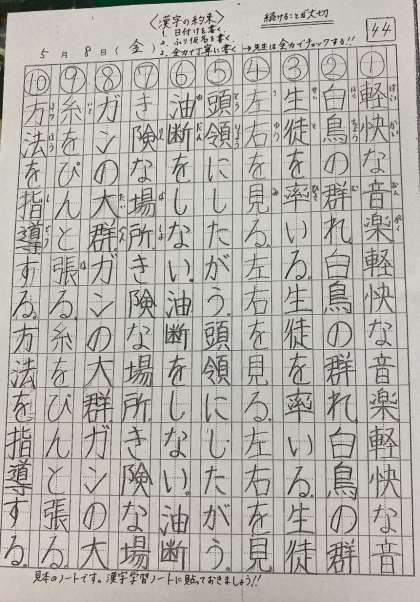 〈漢字の約束〉
続けることが大切
44
1. 日付けを書く
2. ふり仮名を書く
3. 全力で丁寧に書く → 先生は全力でチェックする!!
5月8日(金)
軽快な音楽軽快な音楽軽快な音
②白鳥の群れ白鳥の群れ白鳥の群
③生徒を率いる。生徒を率いる。生徒
④左右を見る。左右を見る。左右を見
⑤頭領にしたがう。頭領にしたがう。
⑥油断をしない。油断をしない。油断
⑦き険な場所き険な場所き険な場
⑧ガンの大群ガンの大群ガンの大
⑨糸をぴんと張る。糸をぴんと張る。
⑩方法を指導する。方法を指導する。
見本のノートです。漢字学習ノートに貼っておきましょう!!